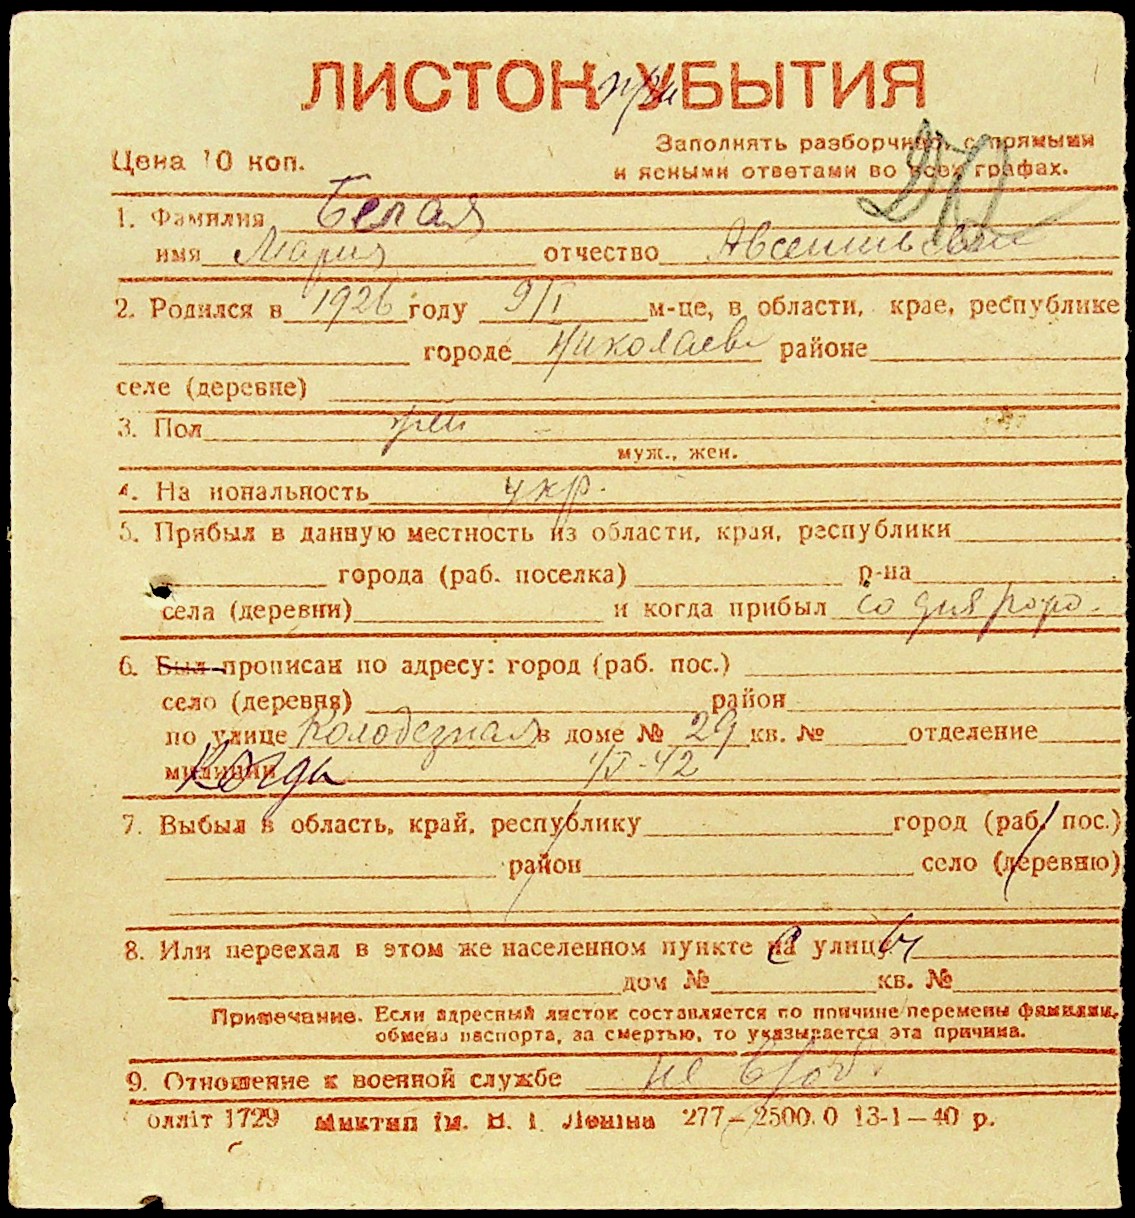 ЛИСТОК при УБЫТИЯ
Заполнять разборчиво, с прямыми
Цена 10 коп.
и ясными ответами во всех графах.
1. Фамилия Белая
имя Мария отчество
2. Родился в 1926 году 9/I м-це, в области, крае, республике
городе Николаев районе
селе (деревне)
3. Пол жен
муж., жен.
4. На иональность укр.
5. Прибыл в данную местность из области, края, республики
города (раб. поселка) р-на
села (деревни) и когда прибыл со дня рожд.
6. Был прописан по адресу: город (раб. пос.)
село (деревня) район
по улице Колодезная в доме № 29 кв. № отделение
милиции Когда
7. Выбыл в область, край, республику город (раб. пос.)
район село (деревню)
8. Или переехал в этом же населенном пункте на с улицы
дом № кв. №
Примечание. Если адресный листок составляется по причине перемены фамилии,
обмена паспорта, за смертью, то указывается эта причина.
9. Отношение к военной службе не в/об.
олліт 1729 Миктип ім. В. І. Леніна 277—2500.0 13-1—40 р.